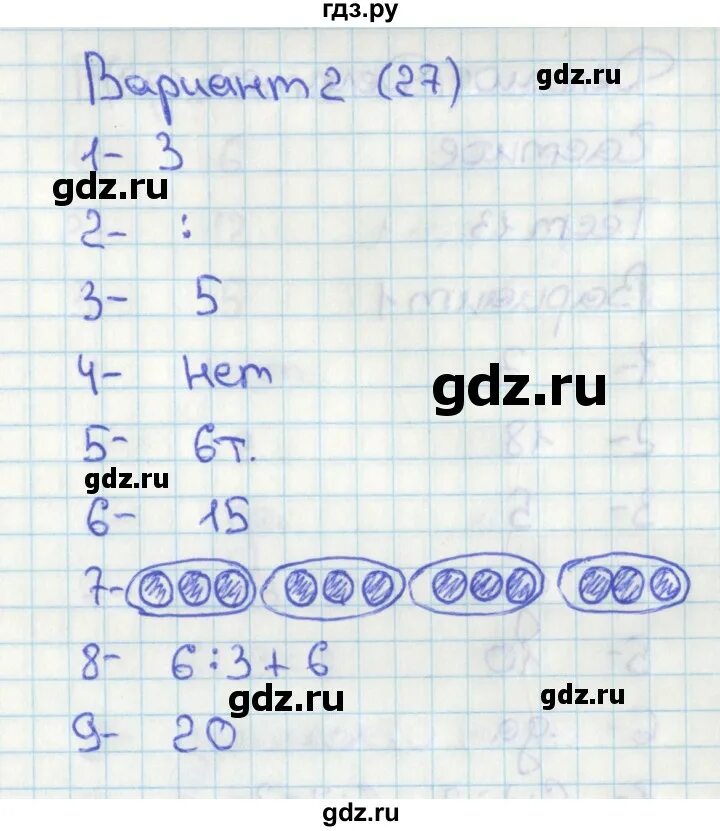 гдз.ру
Вариант 2 (27)
gdz.ru
1- 3
gdz.ru
2- :
3- 5
4- нет
gdz.ru
5- 6т.
gdz.ru
6- 15
7-
8- 6:3+6
gdz.ru
gdz.ru
9- 20
gdz.ru